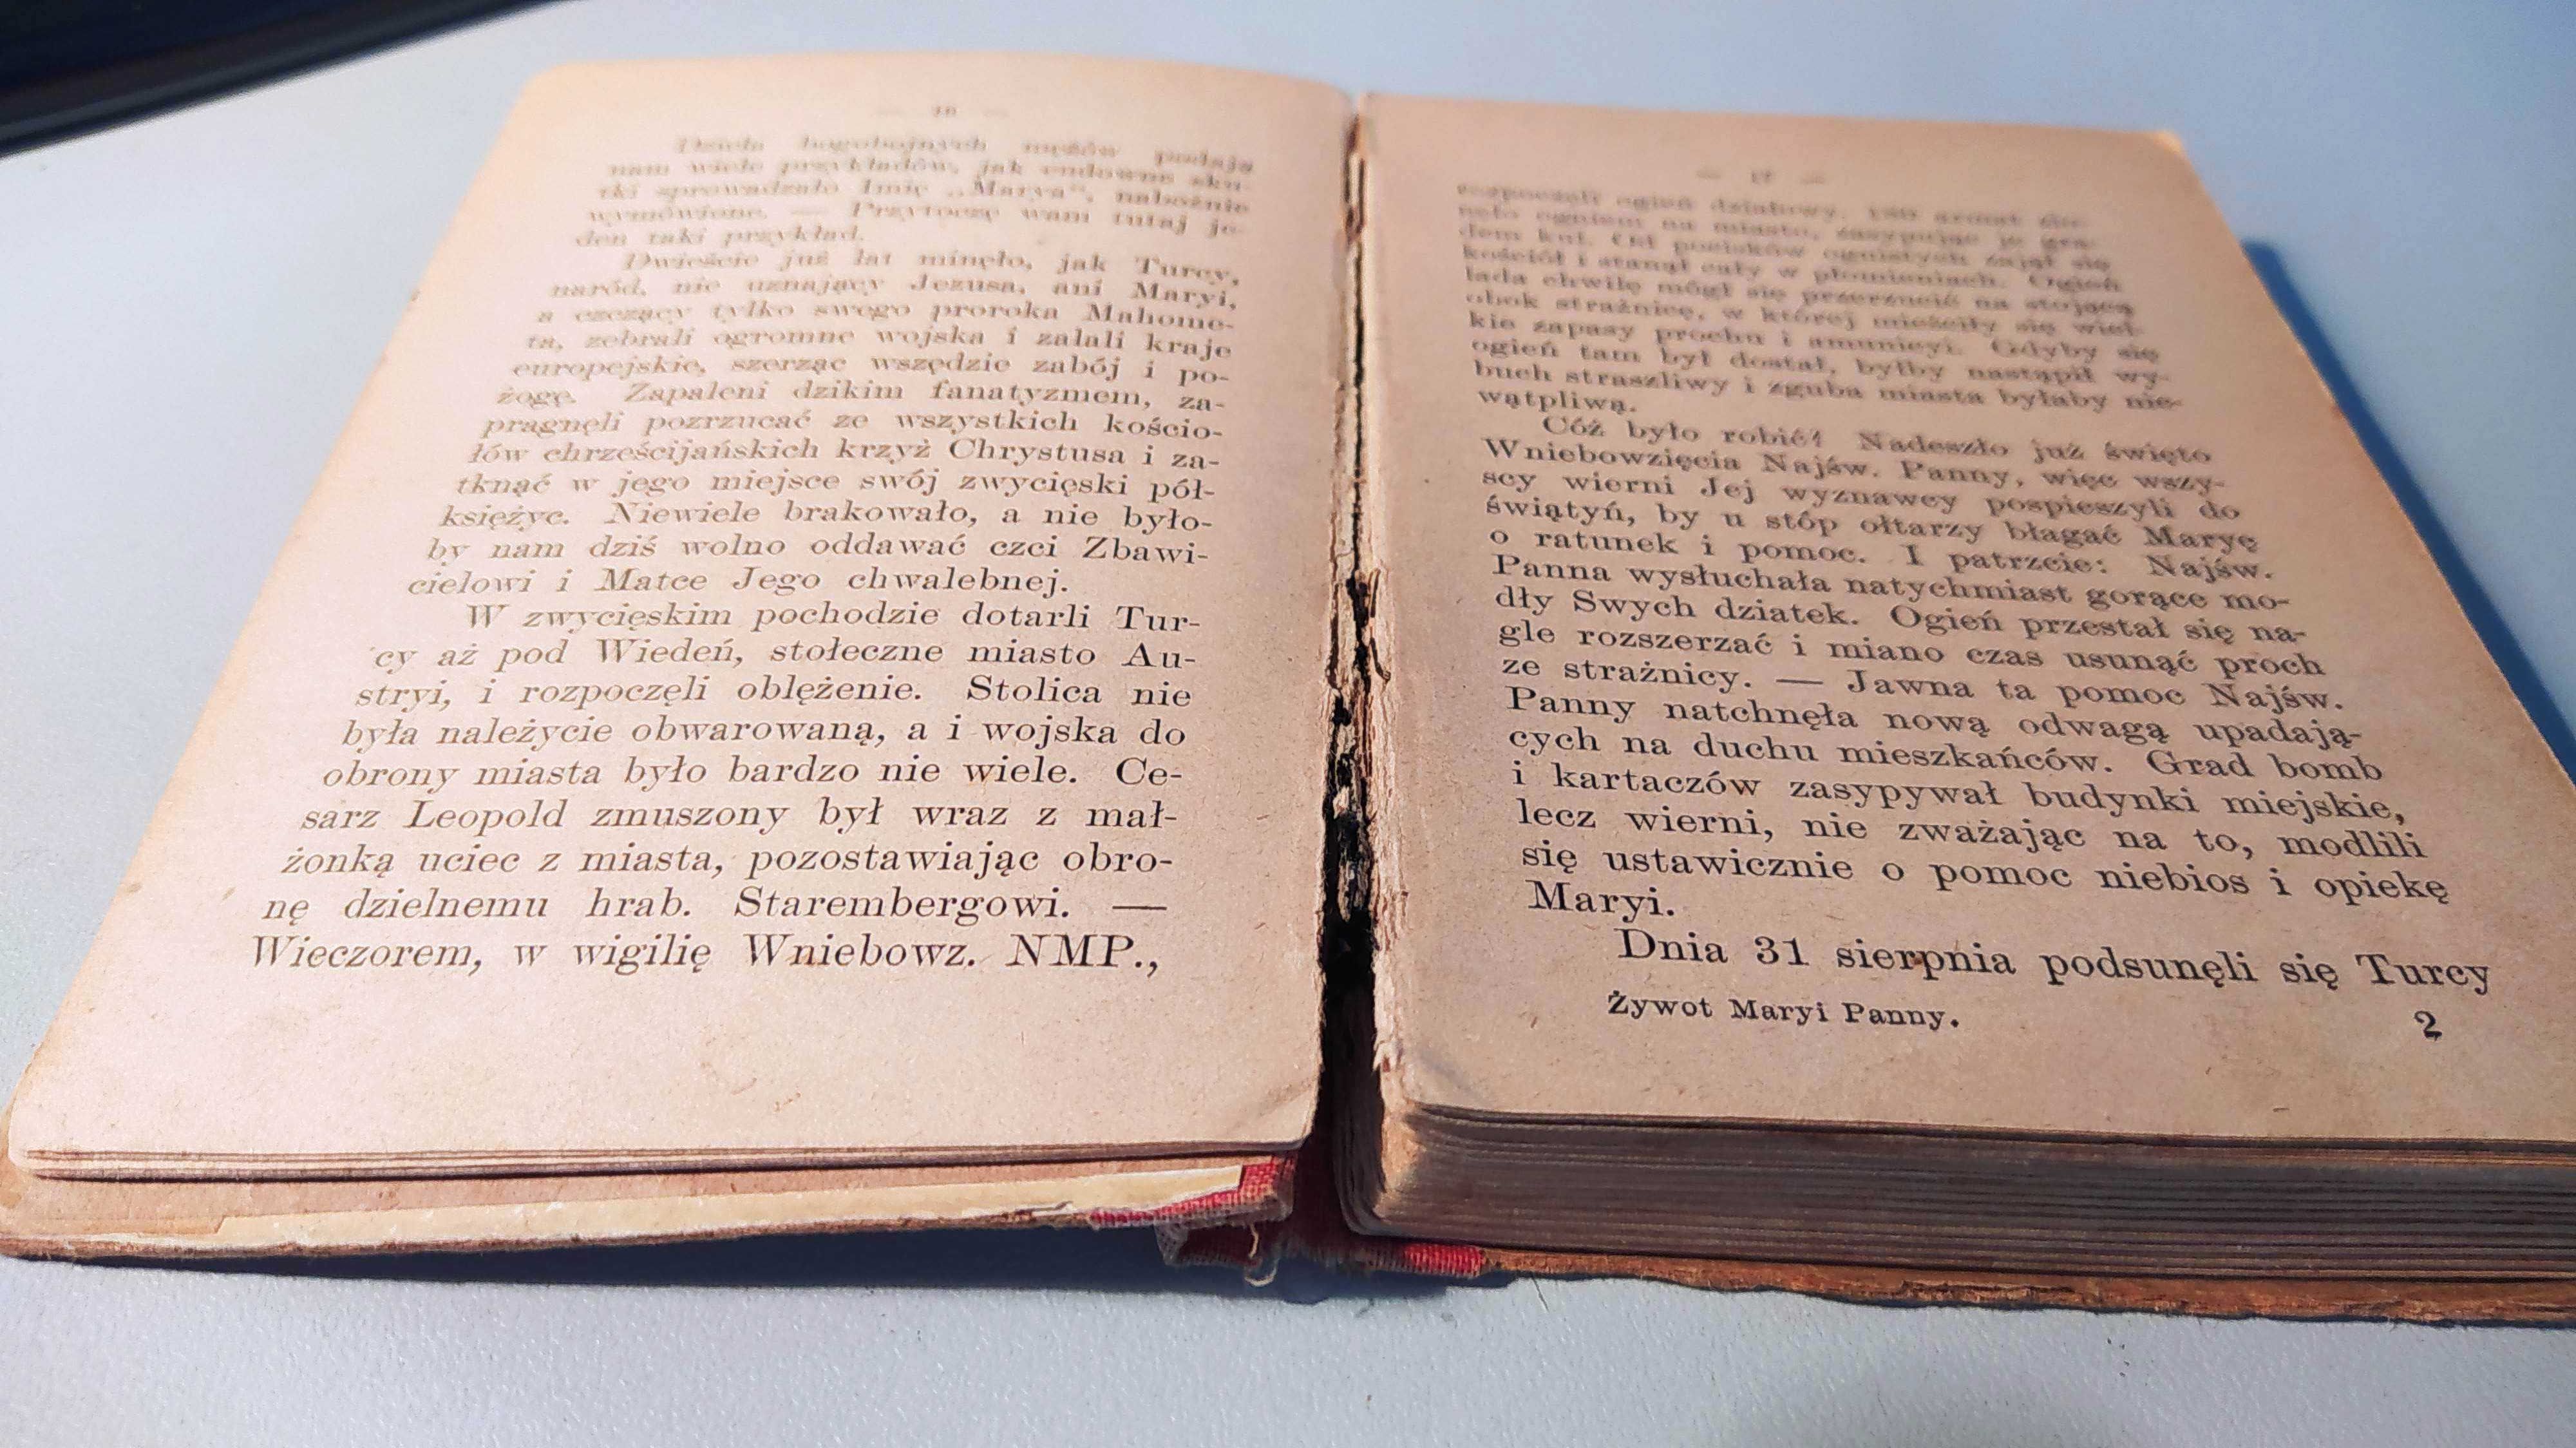 — 16 —
Dzieła bogobojnych mężów podają
nam wiele przykładów, jak cudowne sku-
tki sprowadzało Imię „Marya“, nabożnie
wymówione. — Przytoczę wam tutaj je-
den taki przykład.
Dwieście już lat minęło, jak Turcy,
naród, nie uznający Jezusa, ani Maryi,
a czczący tylko swego proroka Mahome-
ta, zebrali ogromne wojska i zalali kraje
europejskie, szerząc wszędzie zabój i po-
żogę. Zapaleni dzikim fanatyzmem, za-
pragnęli pozrzucać ze wszystkich kościo-
łów chrześcijańskich krzyż Chrystusa i za-
tknąć w jego miejsce swój zwycięski pół-
księżyc. Niewiele brakowało, a nie było-
by nam dziś wolno oddawać czci Zbawi-
cielowi i Matce Jego chwalebnej.
W zwycięskim pochodzie dotarli Tur-
cy aż pod Wiedeń, stołeczne miasto Au-
stryi, i rozpoczęli oblężenie. Stolica nie
była należycie obwarowaną, a i wojska do
obrony miasta było bardzo nie wiele. Ce-
sarz Leopold zmuszony był wraz z mał-
żonką uciec z miasta, pozostawiając obro-
nę dzielnemu hrab. Starembergowi. —
Wieczorem, w wigilię Wniebowz. NMP.,
— 17 —
rozpoczęli ogień działowy.
ogniem na miasto, zasypując je gra-
dem kul. Od pocisków ognistych zajął się
kościół i stanął cały w płomieniach. Ogień
lada chwilę mógł się przerzucić na stojącą
obok strażnicę, w której mieściły się wiel-
kie zapasy prochu i amunicyi. Gdyby się
ogień tam był dostał, byłby nastąpił wy-
buch straszliwy i zguba miasta byłaby nie-
wątpliwą.
Cóż było robić? Nadeszło już święto
Wniebowzięcia Najśw. Panny, więc wszy-
scy wierni Jej wyznawcy pospieszyli do
świątyń, by u stóp ołtarzy błagać Maryę
o ratunek i pomoc. I patrzcie: Najśw.
Panna wysłuchała natychmiast gorące mo-
dły Swych dziatek. Ogień przestał się na-
gle rozszerzać i miano czas usunąć proch
ze strażnicy. — Jawna ta pomoc Najśw.
Panny natchnęła nową odwagą upadają-
cych na duchu mieszkańców. Grad bomb
i kartaczów zasypywał budynki miejskie,
lecz wierni, nie zważając na to, modlili
się ustawicznie o pomoc niebios i opiekę
Maryi.
Dnia 31 sierpnia podsunęli się Turcy
Żywot Maryi Panny. 2